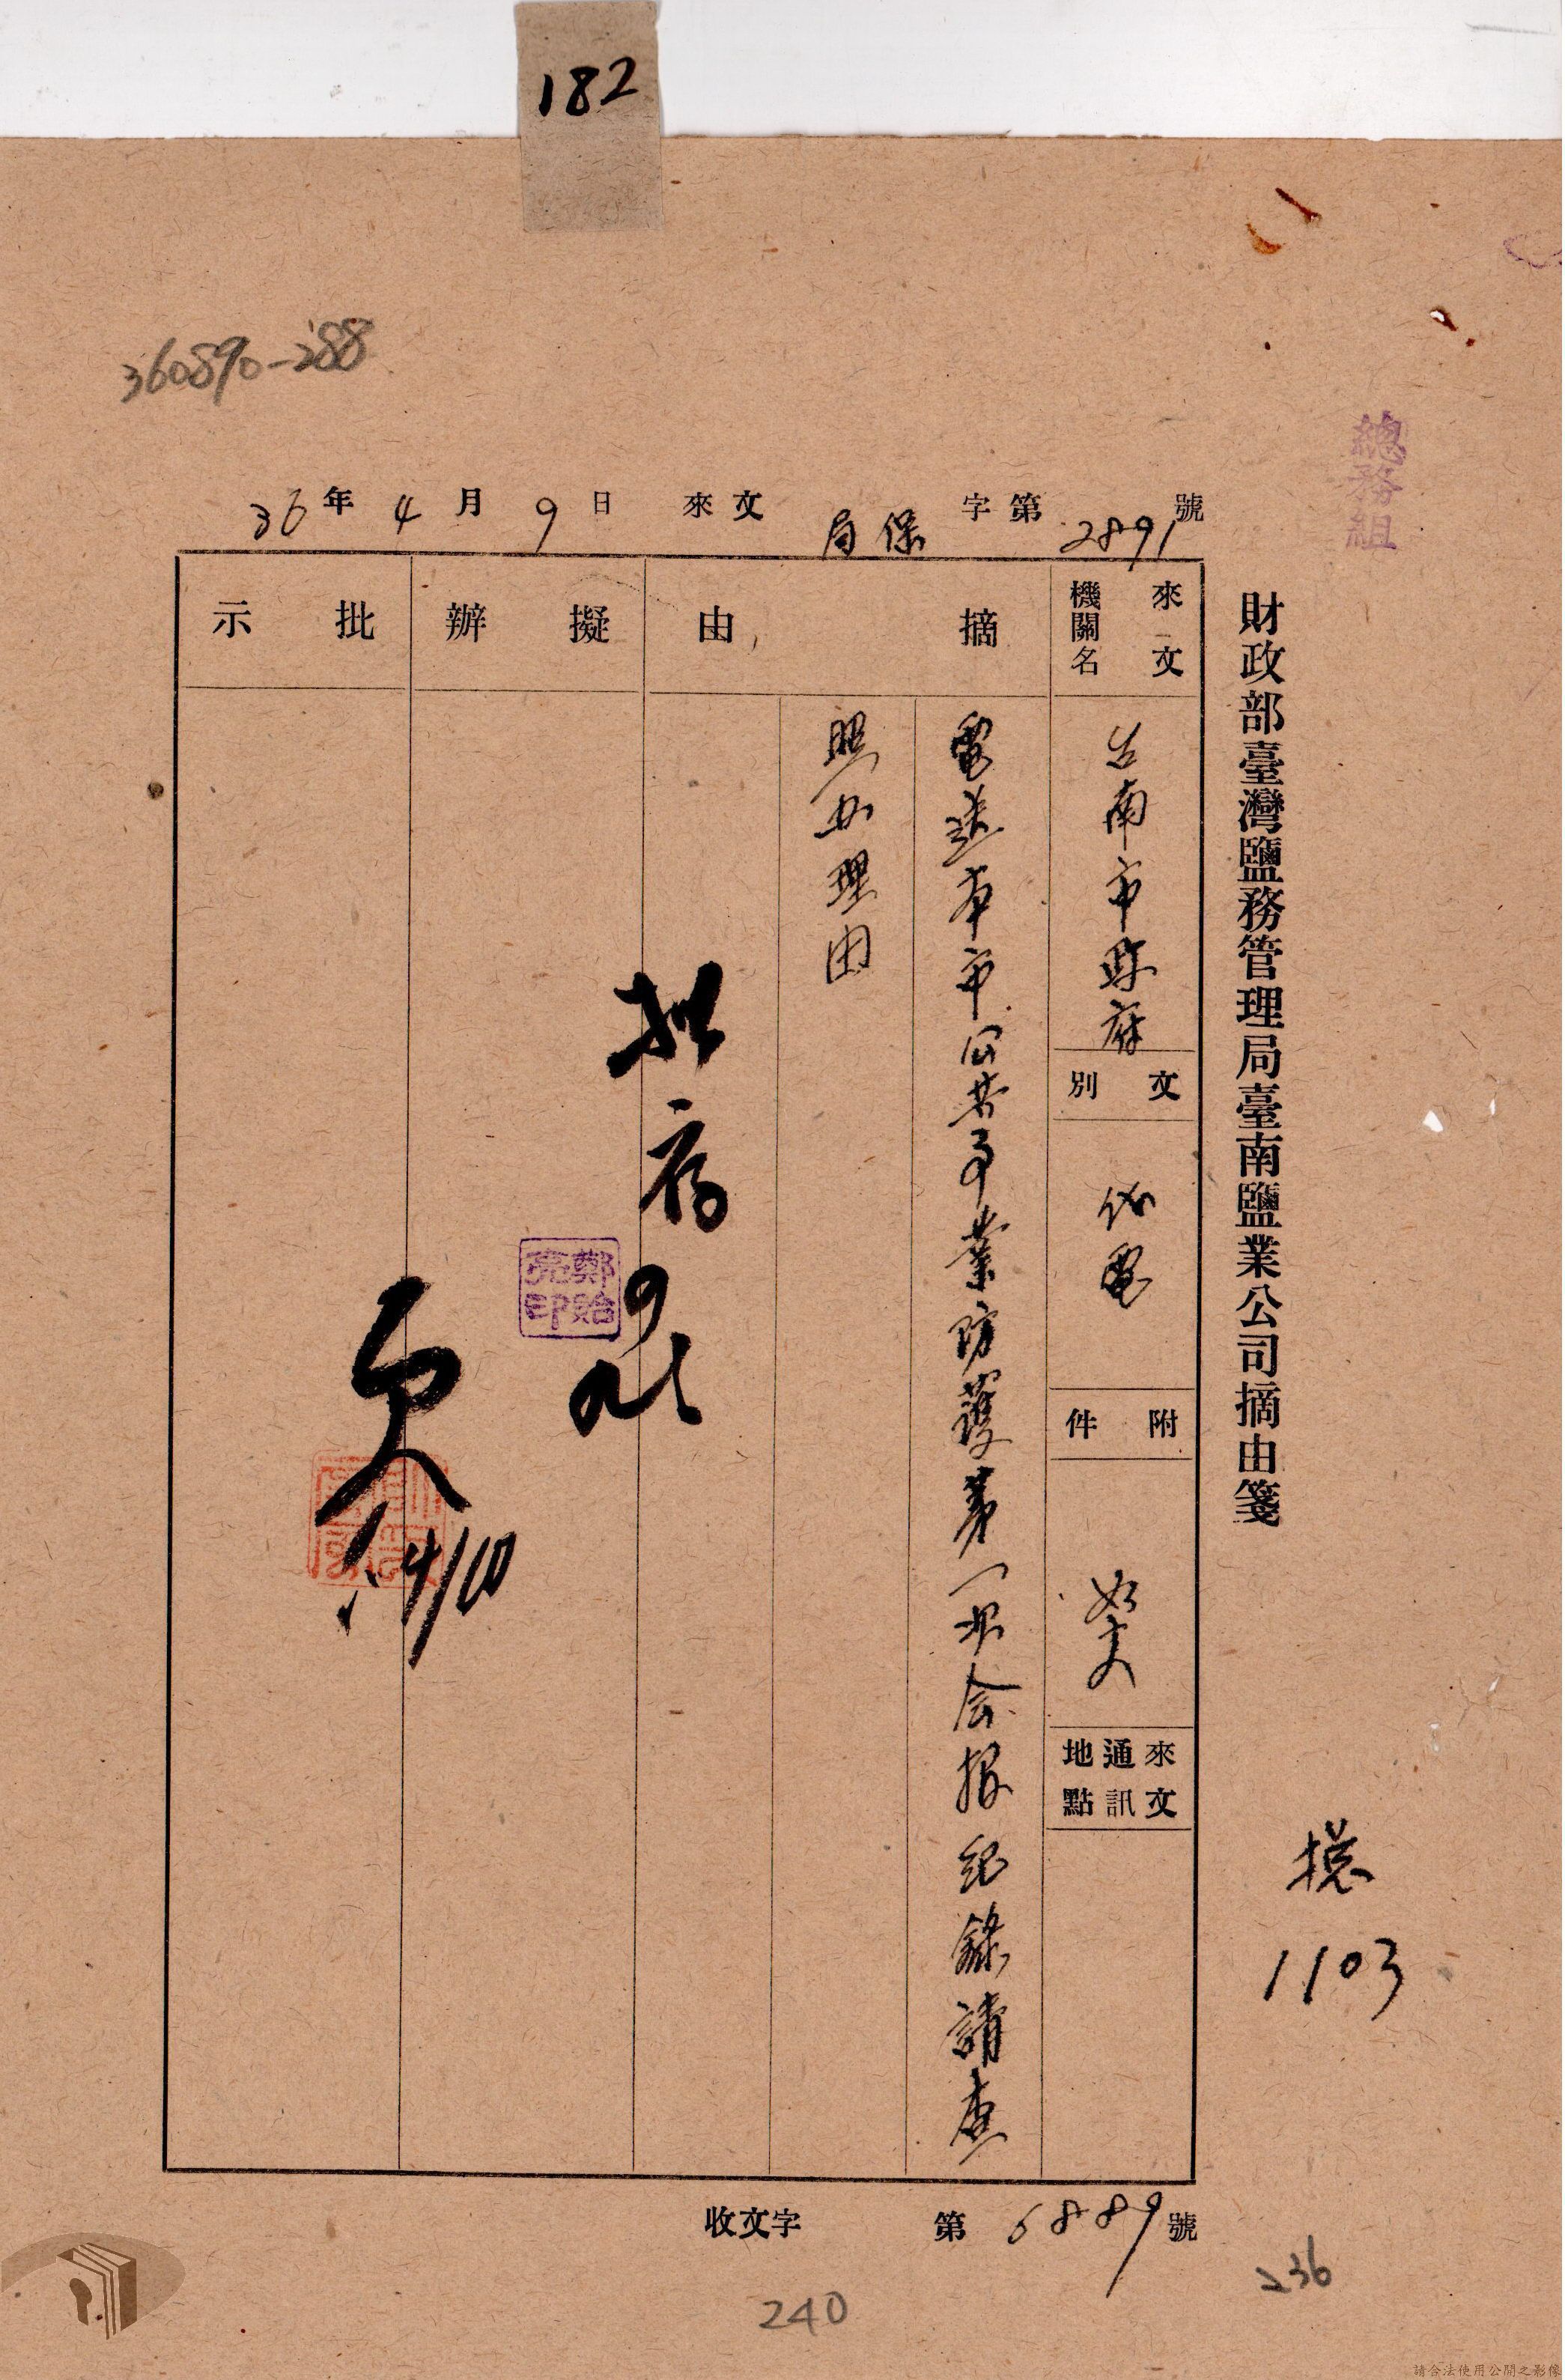 182
360890-288
總務組
財政部臺灣鹽務管理局臺南鹽業公司摘由箋
36年4月9日 來文 局保 字第2891號
來文機關名
台南市縣府
文別
代電
附件
如文
來文通訊地點
摘由
電送本市公共事業防護第一次会報紀錄請查
照办理由
擬辦
拟存
鄭貽亮印
批示
4/10
收文字第6889號
总
1103
236
240
請合法使用公開之影像